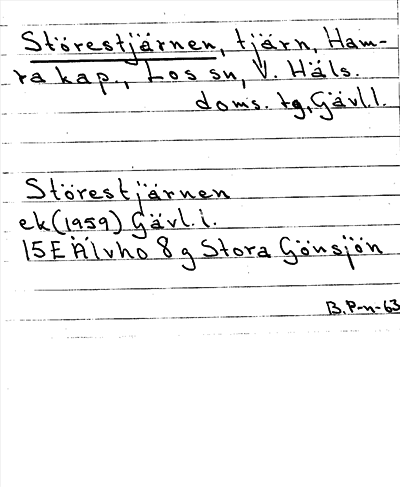 Störestjärnen, tjärn, Ham-
ra kap., Los sn, V. Häls.
doms. tg, Gävl.l.
Störestjärnen
ek (1959) Gävl.l.
15E Älvho 8g Stora Gönsjön
B.P-n-63